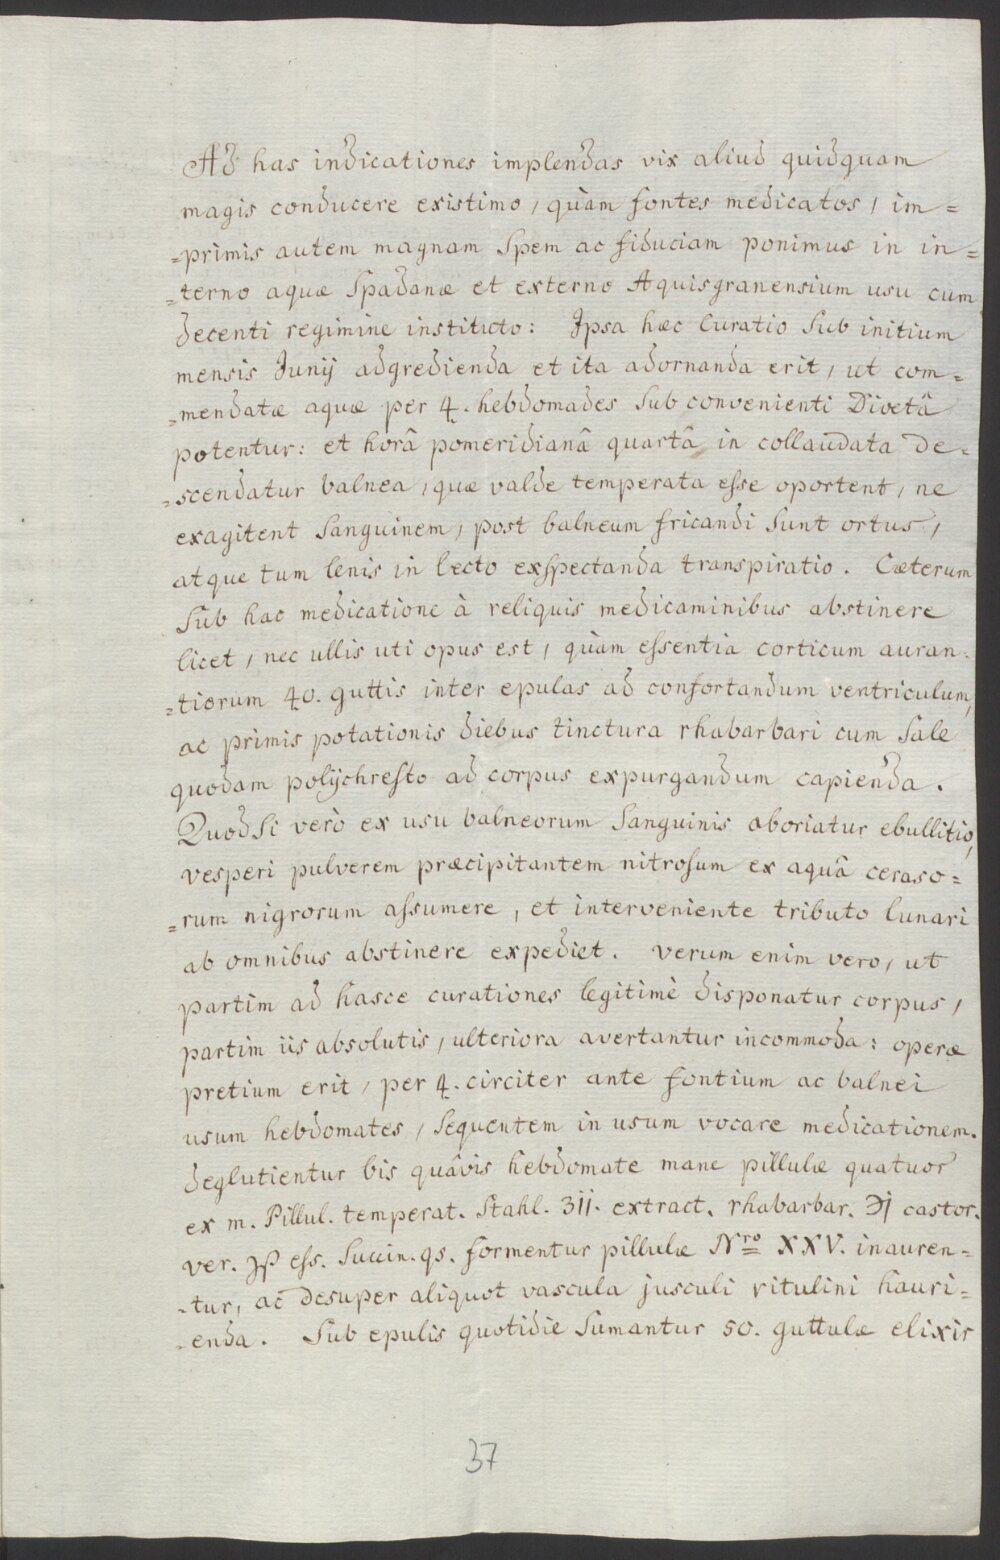 Ad has indicationes implendas vix aliud quidquam
magis conducere existimo, quàm fontes medicatos, im=
=primis autem magnam Spem ac fiduciam ponimus in in=
=terno aquæ Spadanæ et externo Aquisgranensium usu cum
decenti regimine instituto: Ipsa hæc Curatio Sub initium
mensis Junij adgredienda et ita adornanda erit, ut com=
=mendatæ aquæ per 4. hebdomades Sub convenienti Divetâ
potentur: et horâ pomeridianâ quartâ in collaudata de=
=scendatur balnea, quæ valde temperata esse oportent, ne
exagitent Sanguinem, post balneum fricandi Sunt ortus,
atque tum lenis in lecto exspectanda transpiratio. Cæterum
Sub hac medicatione à reliquis medicaminibus abstinere
licet, nec ullis uti opus est, quàm essentia corticum auran=
=tiorum 40. guttis inter epulas ad confortandum ventriculum,
ac primis potationis diebus tinctura rhabarbari cum Sale
quodam polijchresto ad corpus expurgandum capienda.
QuodSi verò ex usu balneorum Sanguinis aboriatur ebullitio,
vesperi pulverem præcipitantem nitrosum ex aquâ ceraso=
=rum nigrorum assumere, et interveniente tributo lunari
ab omnibus abstinere expediet. verum enim vero, ut
partim ad hasce curationes legitimè disponatur corpus,
partim iis absolutis, ulteriora avertantur incommoda: operæ
pretium erit, per 4. circiter ante fontium ac balnei
usum hebdomates, Sequentem in usum vocare medicationem.
deglutientur bis quâvis hebdomate mane pillulæ quatuor
ex m. Pillul. temperat. Stahl. ʒii. extract. rhabarbar. ℈j castor.
ver. ℈ß ess. Succin. qs. formentur pillulæ Nro XXV. inauren=
=tur, ac desuper aliquot vascula jusculi vitulini hauri=
=enda. Sub epulis quotidie Sumantur 50. guttulæ elixir
37